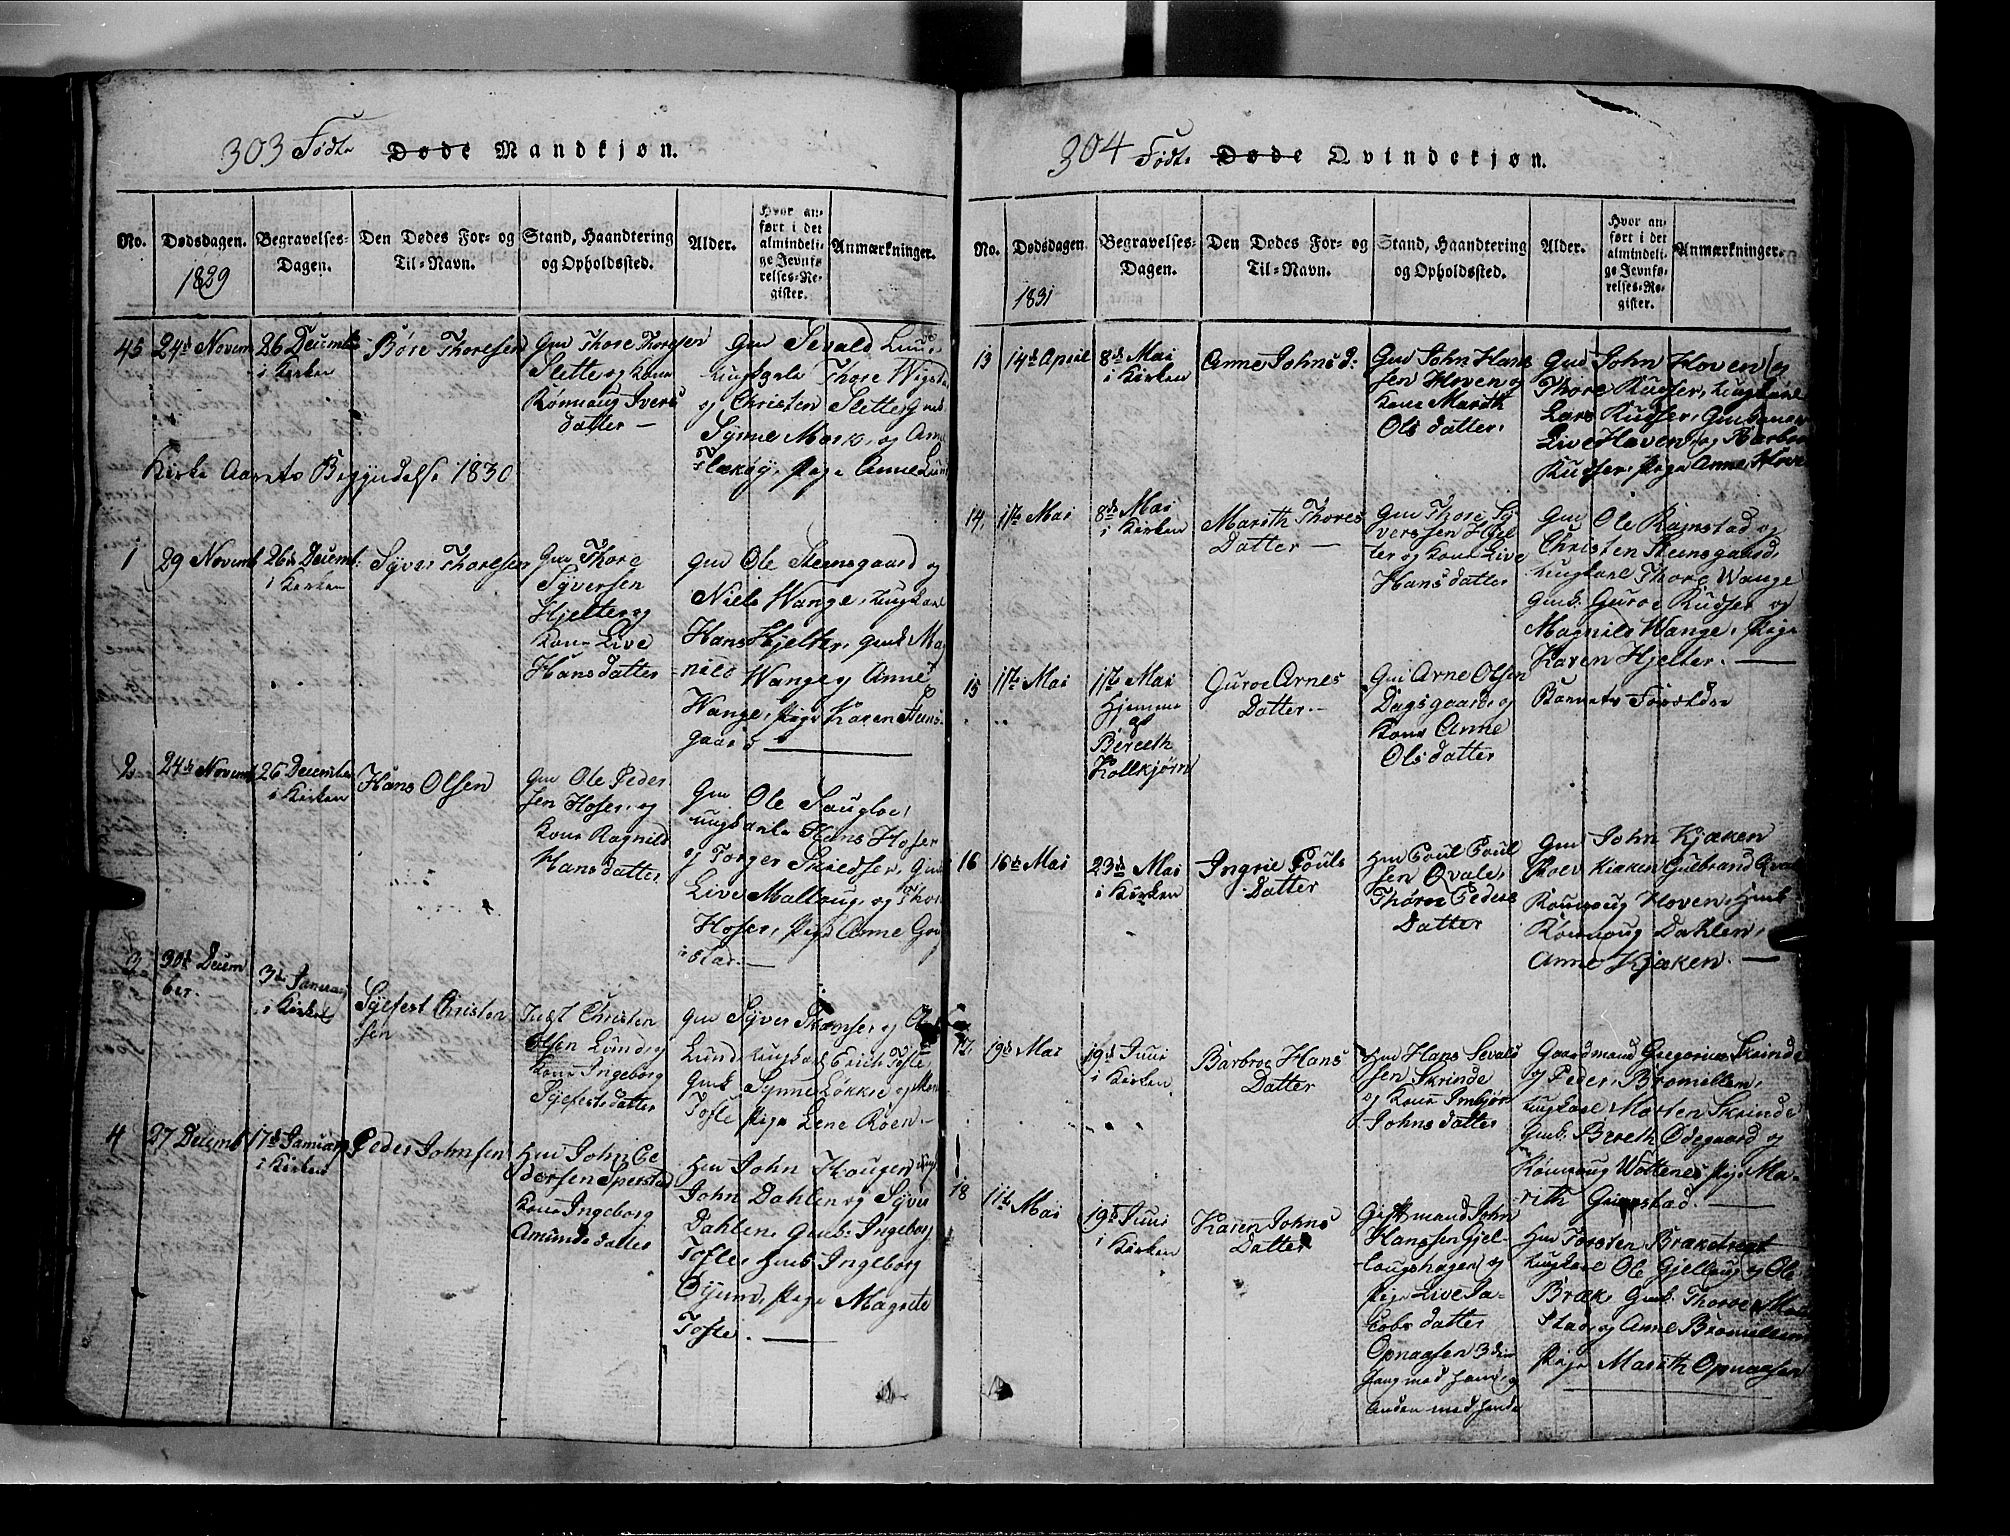 303 Fødte Døde Mandkjøn.
No. Dødsdagen. 1829
Begravelses-Dagen.
Den Dødes For- og Til-Navn.
Stand, Haandtering og Opholdssted.
Alder.
Hvor anført i det almindelige Jevnførelses-Register.
Anmærkninger.
45 24de Novemb 26 Decemb i Kirken
Børe Thoresen
Gm Thore Thoresen
Slette og Kone
Rønnaug Ivers
datter
Gm Sevald Lunde
ungkarle Thore
og Christen Slette Gmd
Synne Mark og Anne
Flækøy, Pige Anne Lund
Kirke Aarets Begyndelse 1830
1 29 Novemb 26de Decemb: i Kirken
Syver Thoresen
Gm Thore
Syversen
Hjelter og
Kone Live
Hansdatter
Gm Ole Steensgaard og
Niels Wange, ungkarl
Hans Hjelter, Gmk Mag
nild Wange og Anne
Wange, Pige Karen Steens
gaard
2 24de Novemb 26 December i Kirken
Hans Olsen
Gm Ole Peder
sen Hoser og
Kone Ragnild
Hansdatter
Gm Ole Saugloe,
ungkarle Hans Hoser
og Torger Skiedser, Gmk
Live Mallaug, og Thor
Hoser, Pige Anne
3 30de Decem
ber.
3de Januar i Kirken
Syefest Christen
sen
Christen
Olsen Lund og
Kone Ingeborg
Syefestsdatter
Gm Syver Skamser og
Lund, ungkarl Erich Tofte
Gmk Synne Løkkie og
Tofte Pige Lene Røen
4 27 Decemb 17de Januar i Kirken
Peder Johnsen
Hm John Pe
dersen Sperstad
Kone Ingeborg
Amundsdatter
Hm John Haugen
John Dahlen og Syver
Dahlen, Gmk: Ingeborg
Tofte, Hmk Ingeborg
Pige Magrete
Tofte.
304 Fødte Døde Qvindekjøn.
No. Dødsdagen 1831
Begravelses-Dagen.
Den Dødes For- og Til-Navn.
Stand, Haandtering og Opholdssted.
Alder.
Hvor anført i det almindelige Jevnførelses-Register.
Anmærkninger.
13 14de April 8de Mai i Kirken
Anne Johnsd:
Gm John Han
sen Hoven og
Kone Marith
Olsdatter,
Gm John Hoven og
Thore Kudser, ungkarl
Lars Kudser, Gmk
Live Hoven og Barbro
Kudser, Pige Anne Hove
14, 1te Mai 8de Mai i Kirken
Marith Thores
Datter
Gm Thore Sy
versen Hjel
ter og Kone Live
Hansdatter
Gm Ole Ramstad og
Christen Steensgaard,
ungkarl Thore Wange
Gmk: Guroe Kudser og
Magnild Wange, Pige
Karen Hjelter.
15 11te Mai 17te Mai
Hjemme
af
Bereth
Kollkjørn
Guroe Arnes
Datter
Gm Arne Olsen
Dagsgaard og
Kone Anne
Olsdatter
Barnets Forældre
16 16de Mai 23de Mai i Kirken
Ingrie Pouls
Datter
Hm Poul Poul
sen Qvale,
Thøroe Peders
Datter
Gm John Kjæken
Gulbrand Qvale
Rønnaug Hoven, Hmk
Rønnaug Dahlen,
Anne Kjæken.
17, 19de Mai 19de Juni i Kirken
Barbroe Hans
Datter
Hm Hans Sevald
sen Skrinde
og Kone Imbjør
Johnsdatter
Gaardmand Gregorius Skrinde
og Peder Bromellem,
ungkarl Morten Skrinde
Gmk. Bereth Ødegaard og
Rønnaug Wottenes Pige Ma-
rith Grimstad.
18 11te Mai 19de Juni i Kirken
Karen Johns
Datter
Gift mand John
Hanssen Gjel-
laugshagen og
Pige Live Ja-
cobsdatter
Opnaasen 3die
Gang med ham, og
Anden med hende
Hm Torsten
ungkarl Ole Gjellaug og Ole
Bræk Gmk: Thoroe
stad, og Anne Bromellem
Pige Marith Opnaasen